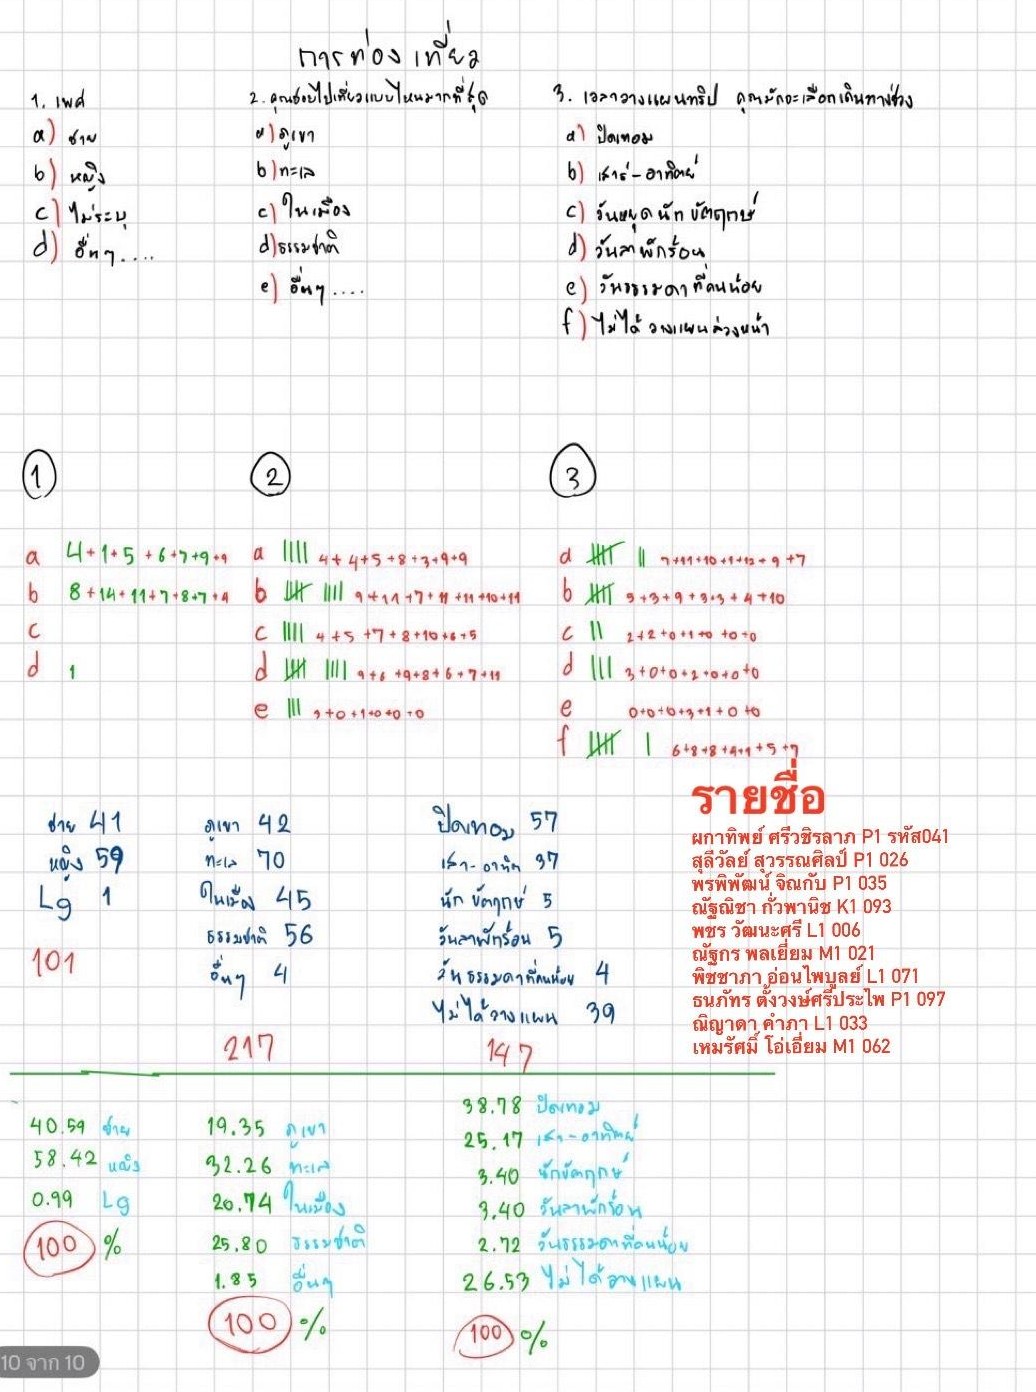 การท่องเที่ยว
1. เพศ
a) ชาย
b) หญิง
c) ไม่ระบุ
d) อื่นๆ....
2. คุณชอบไปเที่ยวแบบไหนมากที่สุด
a) ภูเขา
b) ทะเล
c) ในเมือง
d) ธรรมชาติ
e) อื่นๆ....
3. เวลาวางแผนทริป คุณมักจะเลือกเดินทางช่วง
a) ปิดเทอม
b) เสาร์-อาทิตย์
c) วันหยุดนักขัตฤกษ์
d) วันลาพักร้อน
e) วันธรรมดาที่คนน้อย
f) ไม่ได้วางแผนล่วงหน้า
1
a 4+1+5+6+7+9+9
b 8+14+11+7+8+7+4
c
d 1
2
a 4+4+5+8+3+9+9
b 9+11+7+11+11+10+11
c 4+5+7+8+10+6+5
d 9+6+9+8+6+7+11
e 3+0+1+0+0+0
3
a 7+11+10+1+12+9+7
b 5+3+9+3+3+4+10
c 2+2+0+1+0+0+0
d 3+0+0+2+0+0+0
e 0+0+0+3+1+0+0
f 6+8+8+4+1+5+7
ชาย 41
หญิง 59
Lg 1
101
ภูเขา 42
ทะเล 70
ในเมือง 45
ธรรมชาติ 56
อื่นๆ 4
217
ปิดเทอม 57
เสา-อาทิต 37
นักขัตฤกษ์ 5
วันลาพักร้อน 5
วันธรรมดาที่คนน้อย 4
ไม่ได้วางแผน 39
147
รายชื่อ
ผกาทิพย์ ศรีวชิรลาภ P1 รหัส041
สุลีวัลย์ สุวรรณศิลป์ P1 026
พรพิพัฒน์ จิณกับ P1 035
ณัฐณิชา กั่วพานิช K1 093
พชร วัฒนะศรี L1 006
ณัฐกร พลเยี่ยม M1 021
พิชชาภา อ่อนไพบูลย์ L1 071
ธนภัทร ตั้งวงษ์ศรีประไพ P1 097
ณิญาดา คำภา L1 033
เหมรัศมิ์ โอ่เอี่ยม M1 062
40.59 ชาย
58.42 หญิง
0.99 Lg
100 %
19.35 ภูเขา
32.26 ทะเล
20.74 ในเมือง
25.80 ธรรมชาติ
1.85 อื่นๆ
100 %
38.78 ปิดเทอม
25.17 เสา-อาทิตย์
3.40 นักขัตฤกษ์
3.40 วันลาพักร้อน
2.72 วันธรรมดาที่คนน้อย
26.53 ไม่ได้วางแผน
100 %
10 จาก 10